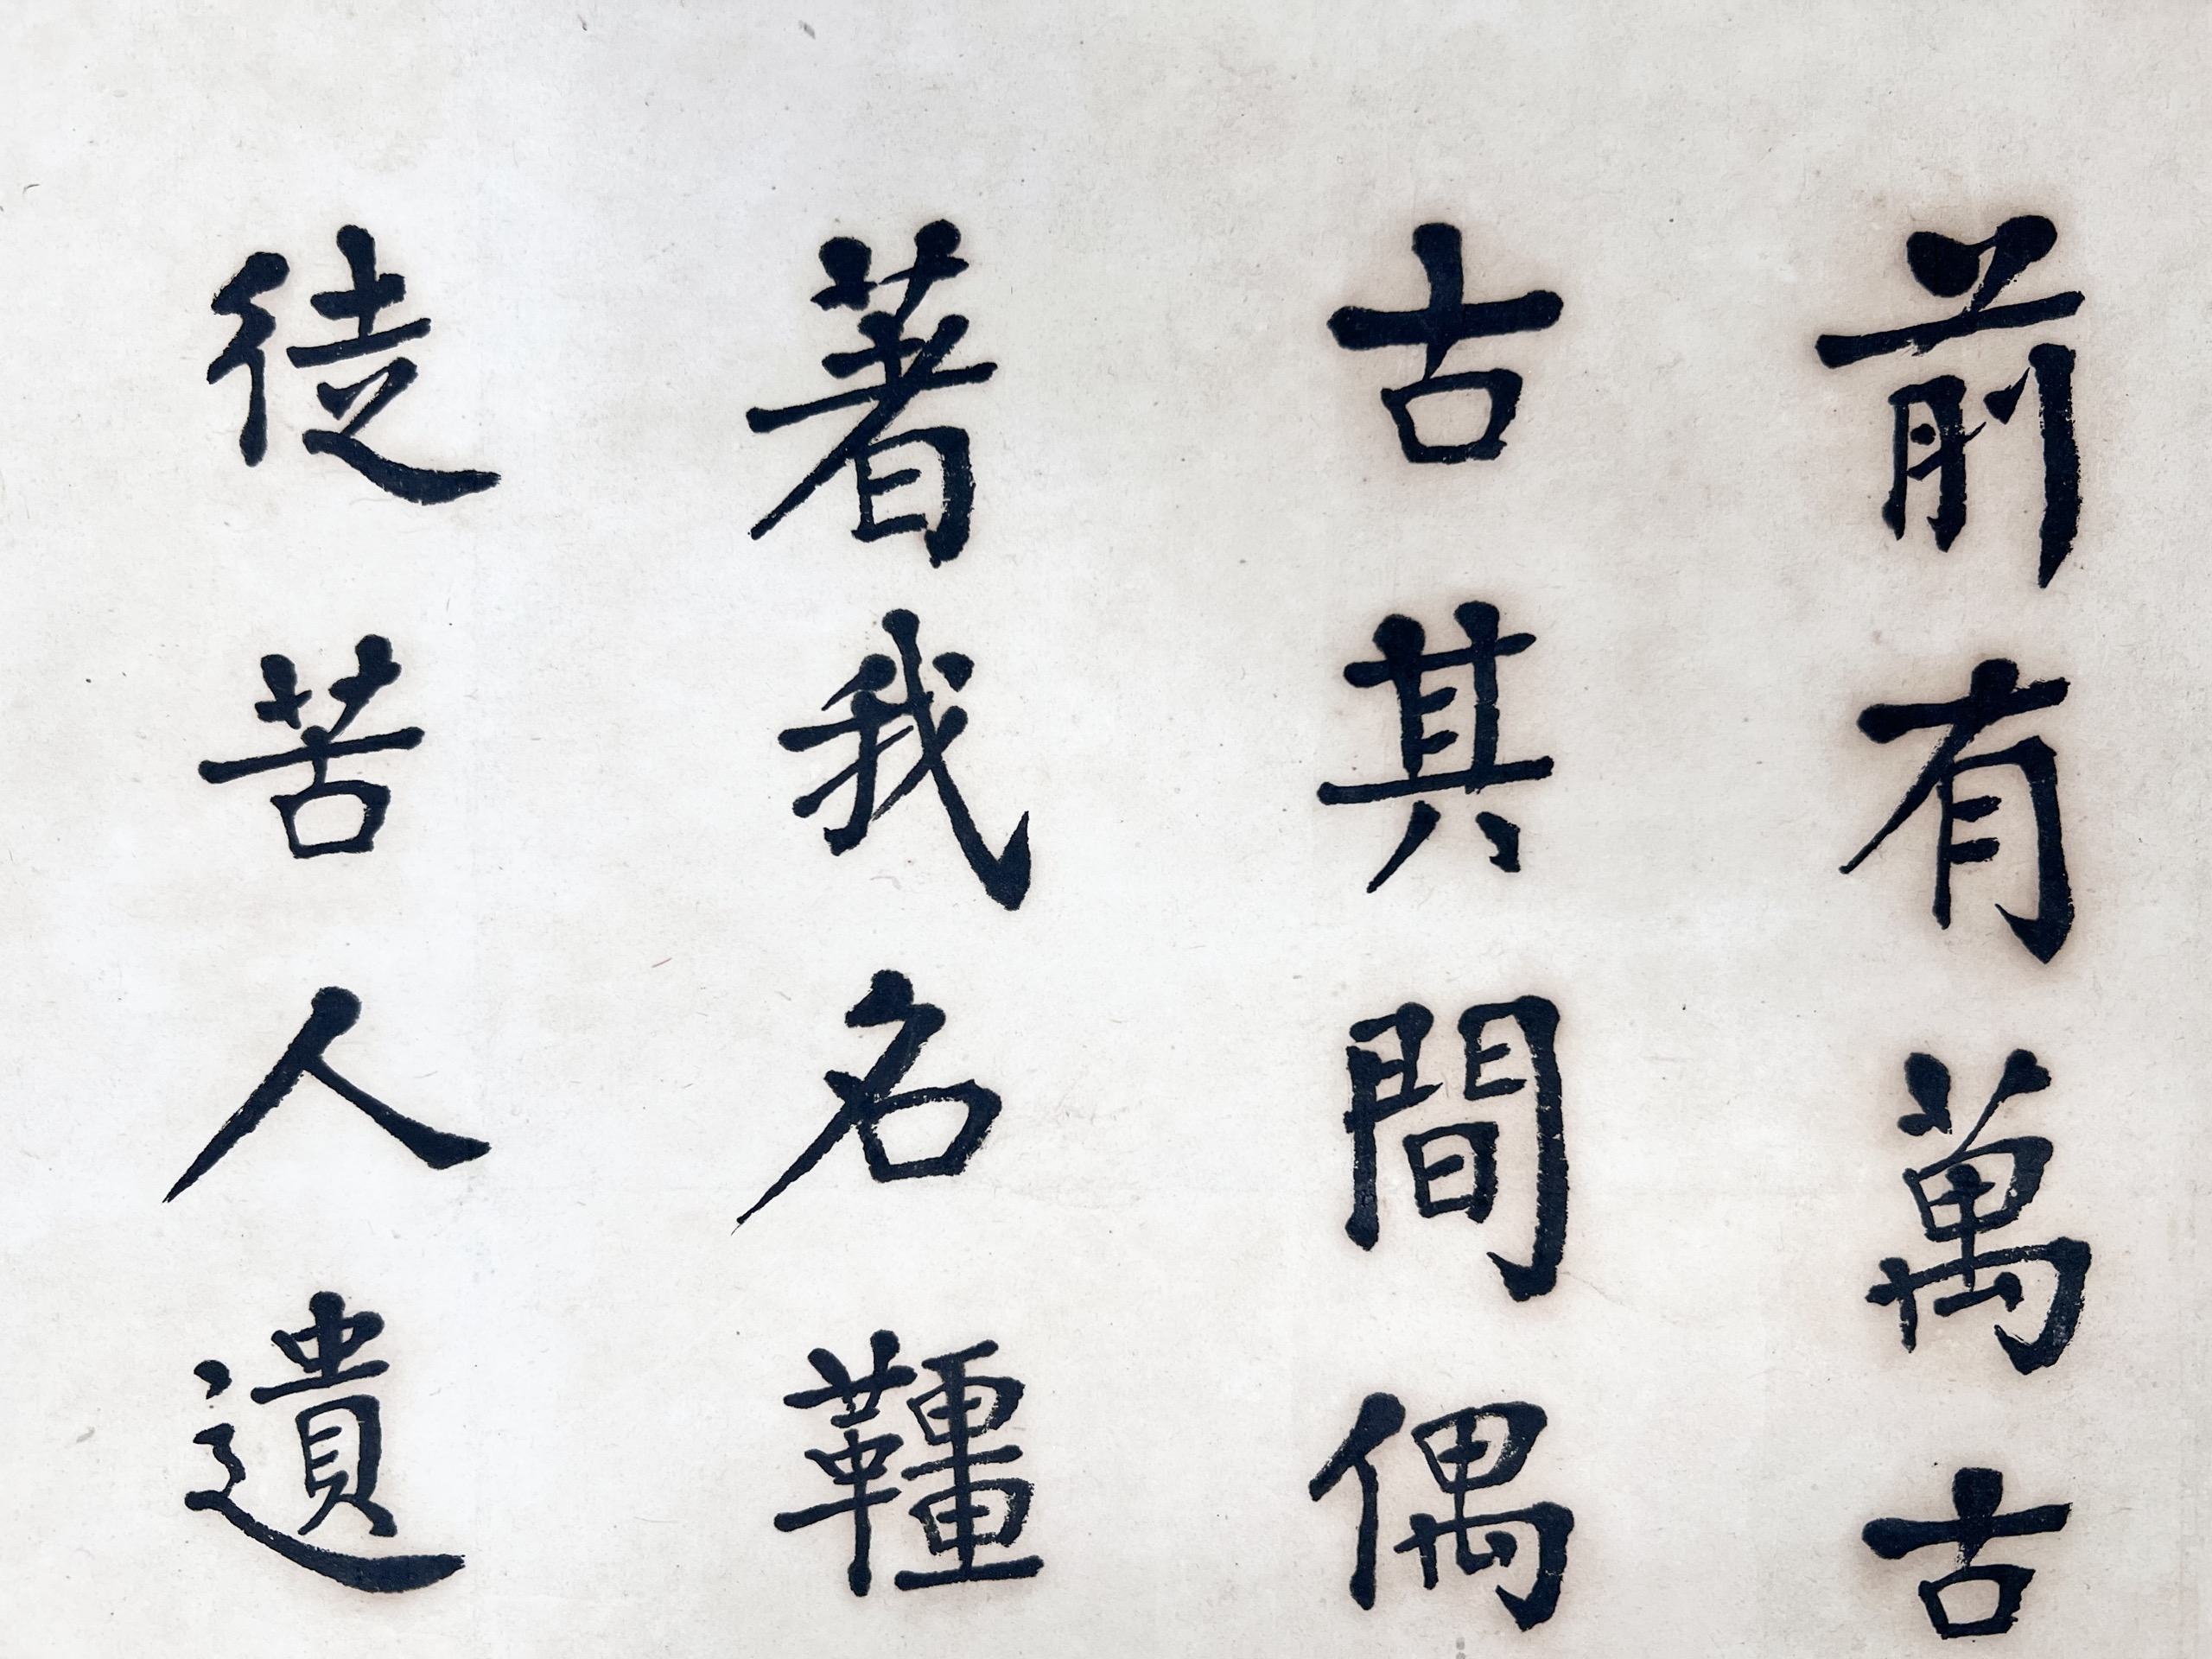 前有萬古
古其間偶
著我名韁
徒苦人遺